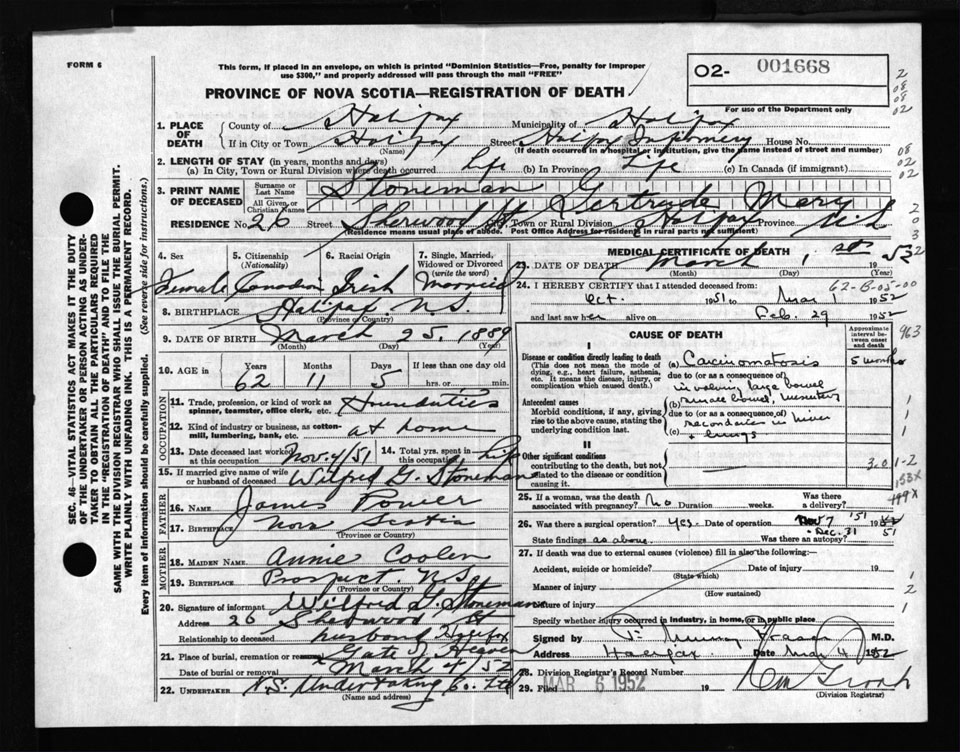 FORM 6
This form, if placed in an envelope, on which is printed "Dominion Statistics—Free, penalty for improper
use $300," and properly addressed will pass through the mail "FREE"
PROVINCE OF NOVA SCOTIA—REGISTRATION OF DEATH
02- 001668
For use of the Department only
2
08
08
02
08
02
2
0
3
2
1. PLACE OF DEATH
County of Halifax Municipality of Halifax
If in City or Town Halifax Street Halifax Infirmary House No.
(Name) (If death occurred in a hospital or institution, give the name instead of street and number)
2. LENGTH OF STAY (in years, months and days)
(a) In City, Town or Rural Division where death occurred Life (b) In Province Life (c) In Canada (if immigrant)
3. PRINT NAME OF DECEASED
Surname or Last Name Stoneman
All Given or Christian Names Gertrude Mary
RESIDENCE No. 26 Street Sherwood St. Town or Rural Division Halifax Province N.S.
(Residence means usual place of abode. Post Office Address for residents in rural parts not sufficient)
4. Sex Female
5. Citizenship (Nationality) Canadian
6. Racial Origin Irish
7. Single, Married, Widowed or Divorced (write the word) Married
8. BIRTHPLACE Halifax N.S.
(Province or Country)
9. DATE OF BIRTH March 25, 1889
(Month) (Day) (Year)
10. AGE in Years Months Days If less than one day old
62 11 5 hrs. or min.
OCCUPATION
11. Trade, profession, or kind of work as
spinner, teamster, office clerk, etc. House duties
12. Kind of industry or business, as cotton-
mill, lumbering, bank, etc. at home
13. Date deceased last worked
at this occupation Nov. 4/51
14. Total yrs. spent in
this occupation Life
15. If married give name of wife
or husband of deceased Wilfred G. Stoneman
FATHER
16. NAME James Power
17. BIRTHPLACE Nova Scotia
(Province or Country)
MOTHER
18. MAIDEN NAME Annie Coolen
19. BIRTHPLACE Prospect. N.S.
(Province or Country)
20. Signature of informant Wilfred G. Stoneman
Address 26 Sherwood St
Relationship to deceased husband Halifax
21. Place of burial, cremation or removal Gate of Heaven
Date of burial or removal March 4 52
22. UNDERTAKER N.S. Undertaking Co. Ltd
(Name and address)
SEC. 46—VITAL STATISTICS ACT MAKES IT THE DUTY
OF THE UNDERTAKER OR PERSON ACTING AS UNDER-
TAKER TO OBTAIN ALL THE PARTICULARS REQUIRED
IN THE "REGISTRATION OF DEATH" AND TO FILE THE
SAME WITH THE DIVISION REGISTRAR WHO SHALL ISSUE THE BURIAL PERMIT.
WRITE PLAINLY WITH UNFADING INK. THIS IS A PERMANENT RECORD.
Every item of information should be carefully supplied. (See reverse side for instructions.)
MEDICAL CERTIFICATE OF DEATH
23. DATE OF DEATH March 1st 1952
(Month) (Day) (Year)
24. I HEREBY CERTIFY that I attended deceased from: 62-B-05-00
Oct. 1951 to Mar 1 1952
and last saw her alive on Feb. 29 1952
CAUSE OF DEATH
Approximate interval between onset and death
963
I
Disease or condition directly leading to death
(This does not mean the mode of
dying, e.g., heart failure, asthenia,
etc. It means the disease, injury, or
complication which caused death.)
(a) Carcinomatosis 5 months
due to (or as a consequence of)
involving large bowel
Antecedent causes
Morbid conditions, if any, giving
rise to the above cause, stating the
underlying condition last.
(b) small bowel, mesentery
due to (or as a consequence of)
secondaries in liver
(c) + lungs
1
1
1
II
Other significant conditions
contributing to the death, but not
related to the disease or condition
causing it.
3.01-2
153X
199X
25. If a woman, was the death
associated with pregnancy? No Duration weeks. Was there
a delivery?
26. Was there a surgical operation? Yes. Date of operation Nov 7 1951
Dec. 31 51
State findings as above. Was there an autopsy?
27. If death was due to external causes (violence) fill in also the following:—
Accident, suicide or homicide? Date of injury 19
(State which)
Manner of injury
(How sustained)
Nature of injury
Specify whether injury occurred in industry, in home, or in public place
1
2
1
Signed by Murray Fraser M.D.
Address Halifax. Date Mar 4 1952
28. Division Registrar's Record Number
29. Filed MAR 6 1952 19
(Division Registrar)